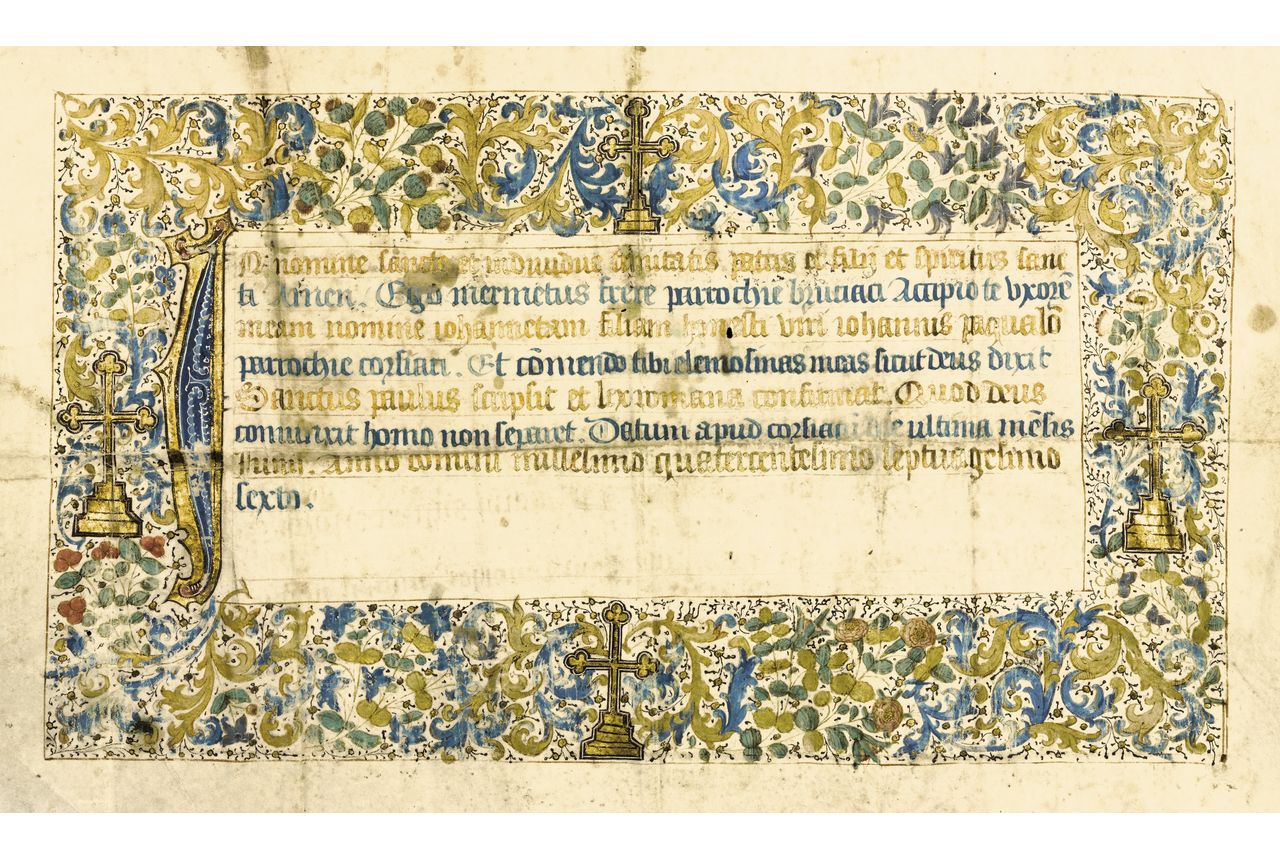 IN nomine sancte et individue trinitatis patris et filij et spiritus sanc
ti Amen. Ego mermetus frere parrochie bruciaci Accipio te vxorē
meam nomine iohannetam filiam honesti viri iohannis paqualō
parrochie corsiaci. Et cōmendo tibi elemosinas meas sicut deus dixit
Sanctus paulus scripsit et lex romana confirmat. Quod deus
coniunxit homo non separet. Datum apud corsiacū die ultima mēsis
Iunii. Anno domini millesimo quatercentesimo septuagesimo
sexto.